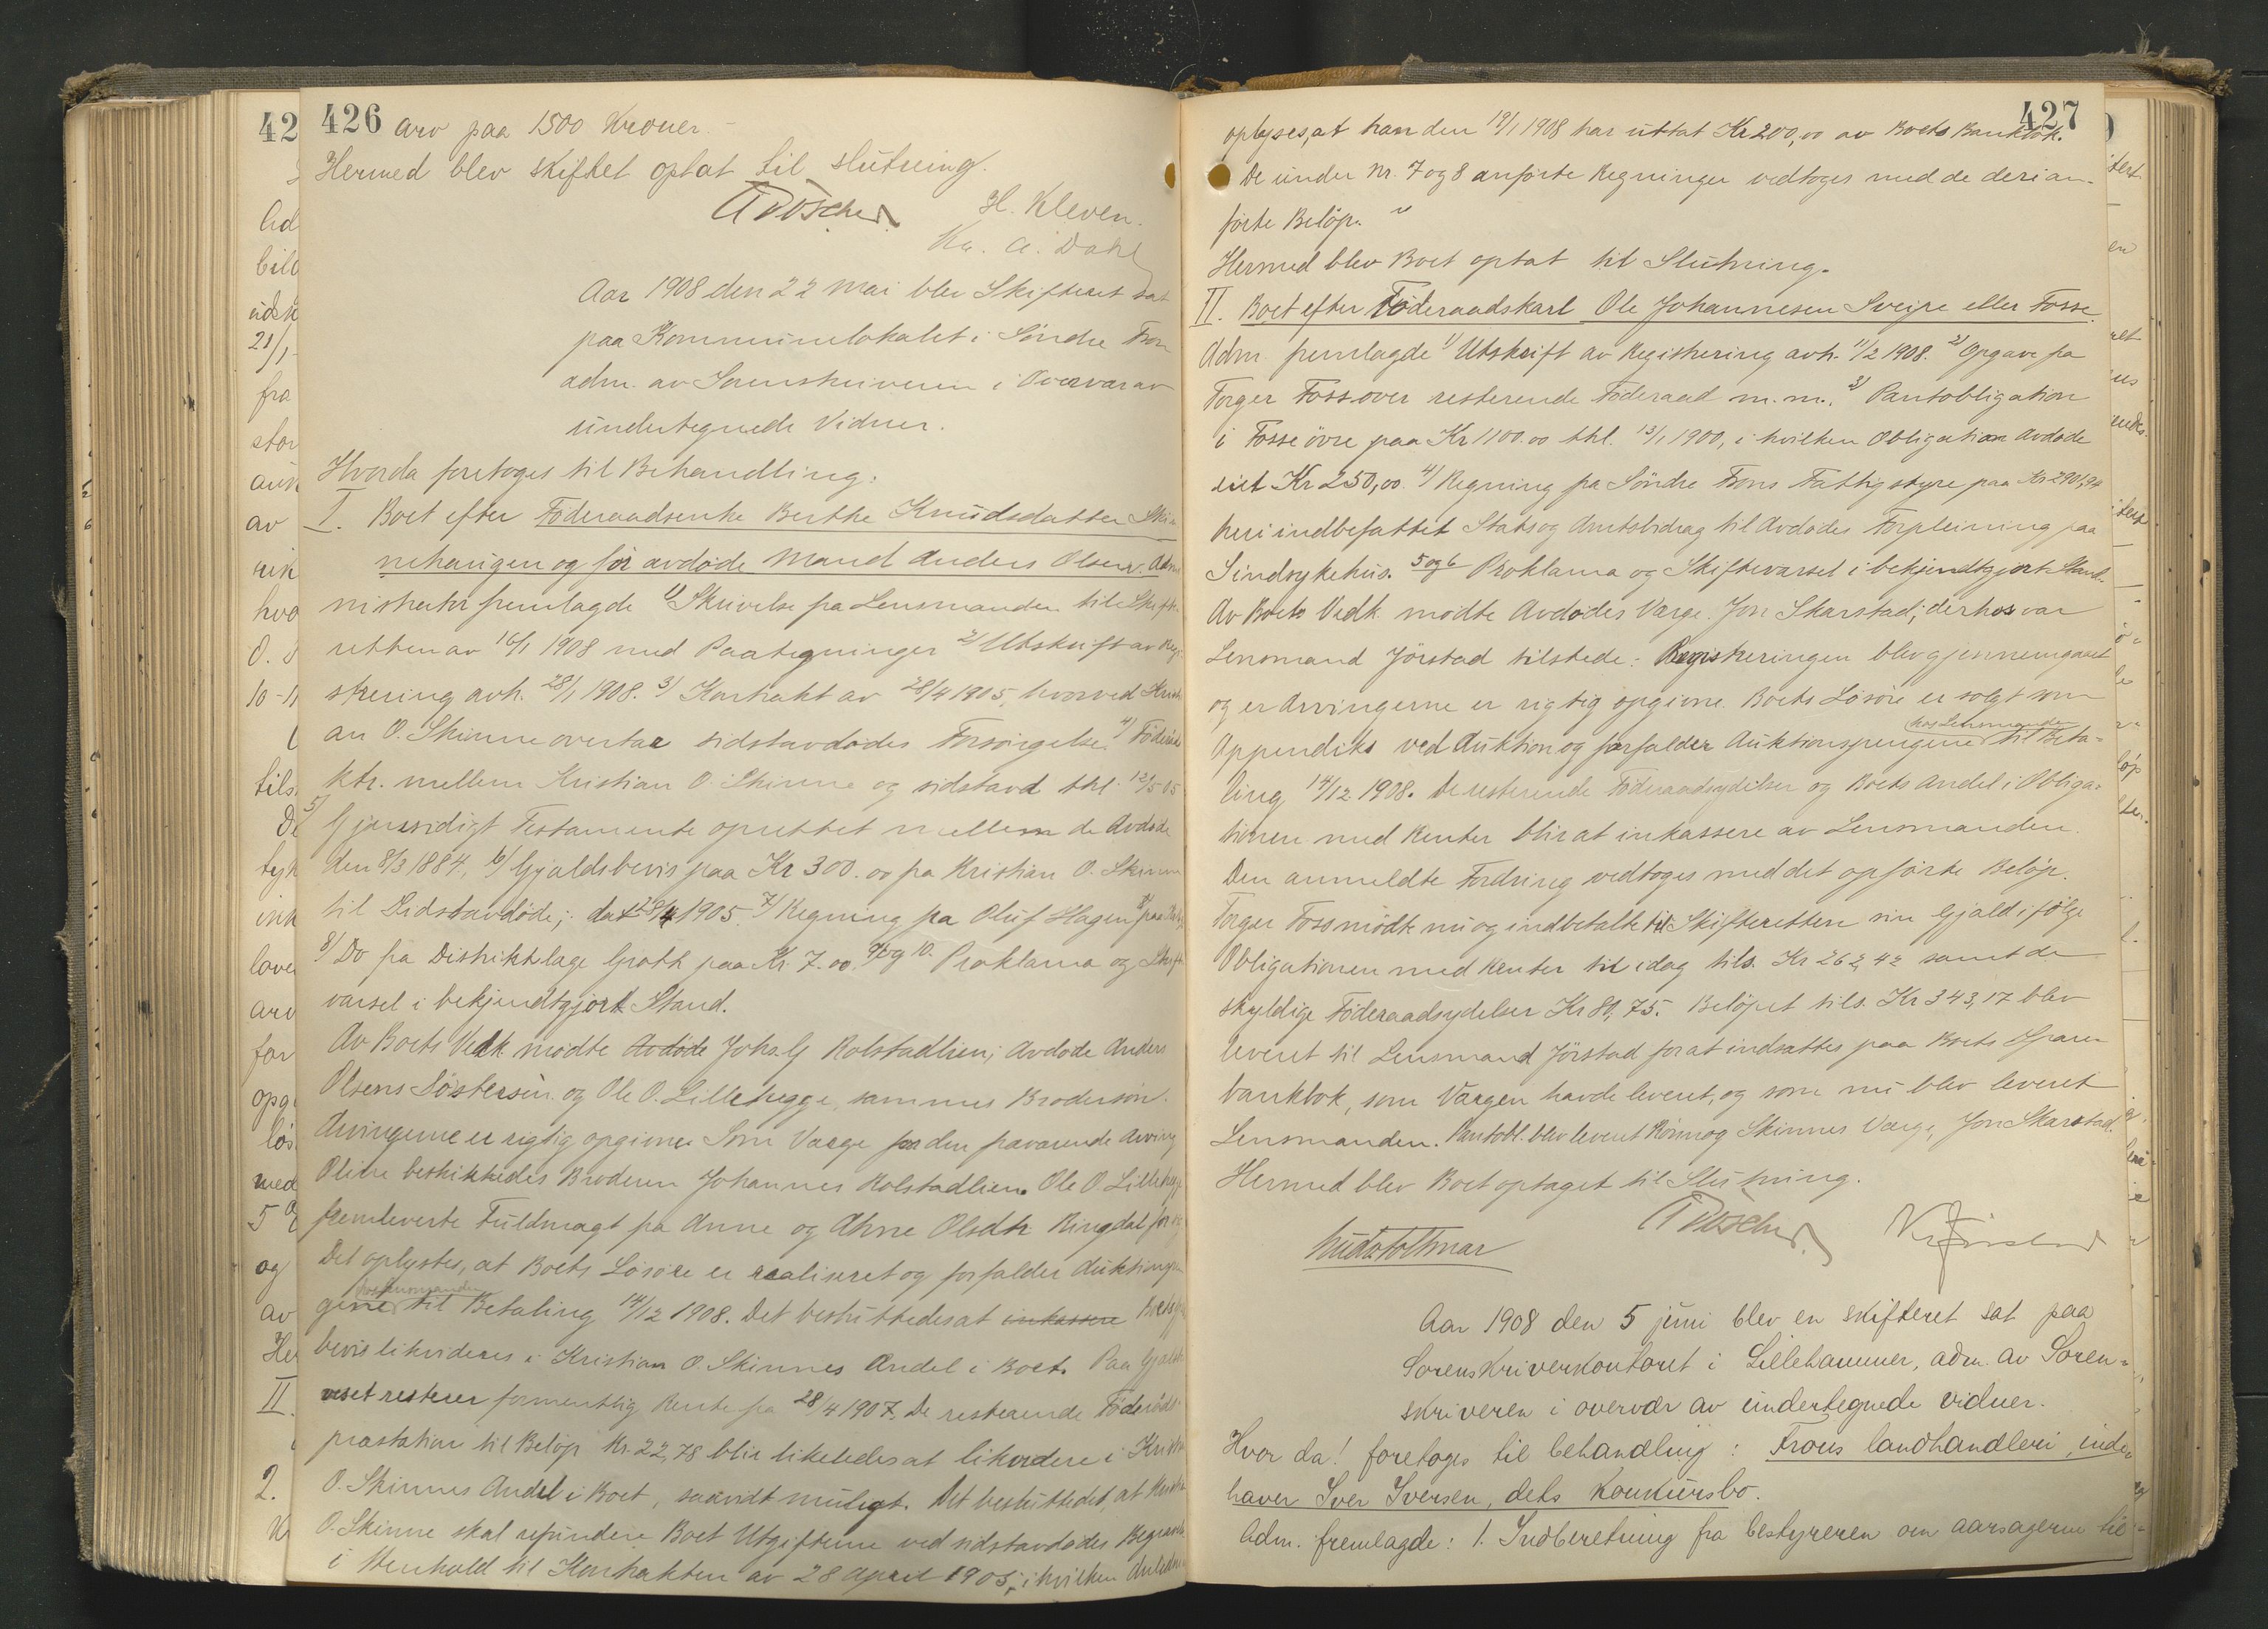 426
arv paa 1500 Kroner.
Hermed blev skiftet optat til slutning.
H. Kleven.
Kr. A. Dahl
Aar 1908 den 22 Mai blev Skifteret sat
paa Kommunelokalet i Söndre Fron
adm. av Sorenskriveren i Overvær av
undertegnede Vidner.
Hvorda foretoges til Behandling:
I. Boet efter Föderaadsenke Berthe Knudsdatter Skin
nehaugen og för avdöde Mand Anders Olsen. Admi
nistrator fremlagde 1) Skrivelse fra Lensmanden til Skifte
retten av 16/1 1908 med Paategninger 2) Utskrift av Reg
strering avh. 28/1 1908. 3) Kontrakt av 28/4 1905, hvorved Kristi
an O. Skinne overtar sidstavdödes Forsörgelse 4) Föderaads
ktr. mellem Kristian O. Skinne og sidstavd thl. 12/5 05
5) Gjensidigt Testamente oprettet mellem de Avdöde
den 8/3 1884, 6) Gjældsbevis paa Kr 300.00 fra Kristian O. Skinne
til Sidstavdöde; dat 28/4 1905. 7) Regning fra Oluf Hagen paa
8) Do fra Distriktslæge Groth paa Kr. 7.00. 9 og 10. Proklama og Skifte
varsel i bekjendtgjort Stand.
Av Boets Vedk. mödte Avdöde Johs. G Rolstadlien; avdöde Anders
Olsens Söstersön og Ole O. Lillehegge, sammes Brodersön.
Arvingerne er rigtig opgivne. Som Værge for den fraværende Arving
Oline beskikkedes Broderen Johannes Rolstadlien. Ole O. Lillehegge
fremleverte Fuldmagt fra Anne og Ahne Olsdtr Ringdal for
Det oplystes, at Boets Lösöre er realiseret og forfalder Auktionspen
hos Lensmanden
gene til Betaling 14/12 1908. Det besluttedes at inkassere Boets
bevis likvideres i Kristian O. Skinnes Andel i Boet. Paa Gjælds
viset resterer formentlig Rente fra 28/4 1907. De resterende Föderaads
præstation til Belöp Kr. 22,78 blir likeledes at likvidere i Kristian
O. Skinnes Andel i Boet, saavidt muligt. Det besluttedes, at Kristian
O. Skinne skal refundere Boet Utgifterne ved sidstavdödes Begravelse
i Henhold til Kontrakten av 28 April 1905, i hvilken Anledning
427
oplyses, at han den 19/1 1908 har uttat Kr 200,00 av Boets Bankbok.
De under Nr. 7 og 8 anförte Regninger vedtoges med de deri an-
förte Belöp.
Hermed blev Boet optat til Slutning.
II. Boet efter Föderaadskarl Ole Johannesen Sveipe eller Fosse.
Adm. fremlagde 1) Utskrift av Registrering avh. 11/2 1908. 2) Opgave fra
Torger Foss over resterende Föderaad m.m. 3) Pantobligation
i Fosse övre paa Kr 1100.00 thl. 13/1 1900, i hvilken Obligation Avdöde
eiet Kr 250,00. 4) Regning fra Söndre Frons Fattigstyre paa Kr 2901,94
heri indbefattet Stats og Amtsbidrag til Avdödes Forpleining paa
Sindsykehus. 5 og 6 Proklama og Skiftevarsel i bekjendtgjort Stand.
Av Boets Vedk. mödte Avdödes Værge Jon Skarstad; derhos var
Lensmand Jörstad tilstede. Registreringen blev gjennemgaaet
og er Arvingerne er rigtig opgivne. Boets Lösöre er solgt som
hos Lensmanden
Appendiks ved Auktion og forfalder Auktionspengene til Beta-
ling 14/12 1908. De resterende Föderaadsydelser og Boets Andel i Obliga-
tionen med Renter blir at inkassere av Lensmanden.
Den anmeldte Fordring vedtoges med det opförte Belöp.
Torger Foss mödte nu og indbetalte til Skifteretten sin Gjæld ifölge
Obligationen med Renter til idag tils. Kr 262,42 samt de
skyldige Föderaadsydelser Kr 80,75. Belöpet tils. Kr 343,17 blev
leveret til Lensmand Jörstad for at indsættes paa Boets Spare
bankbok, som Værgen havde leveret, og som nu blev leveret
Lensmanden. Pantobl. blev leveret Rönnog Skinnes Værge, Jon Skarstad.
Hermed blev Boet optaget til Slutning.
Aar 1908 den 5 juni blev en skifteret sat paa
Sorenskriverkontoret i Lillehammer, adm. av Soren-
skriveren i overvær av undertegnede vidner.
Hvor da! foretoges til behandling: Frons landhandleri, inde-
haver Iver Iversen, dets Konkursbo.
Adm. fremlagde: 1. Indberetning fra bestyreren om aarsagerne til